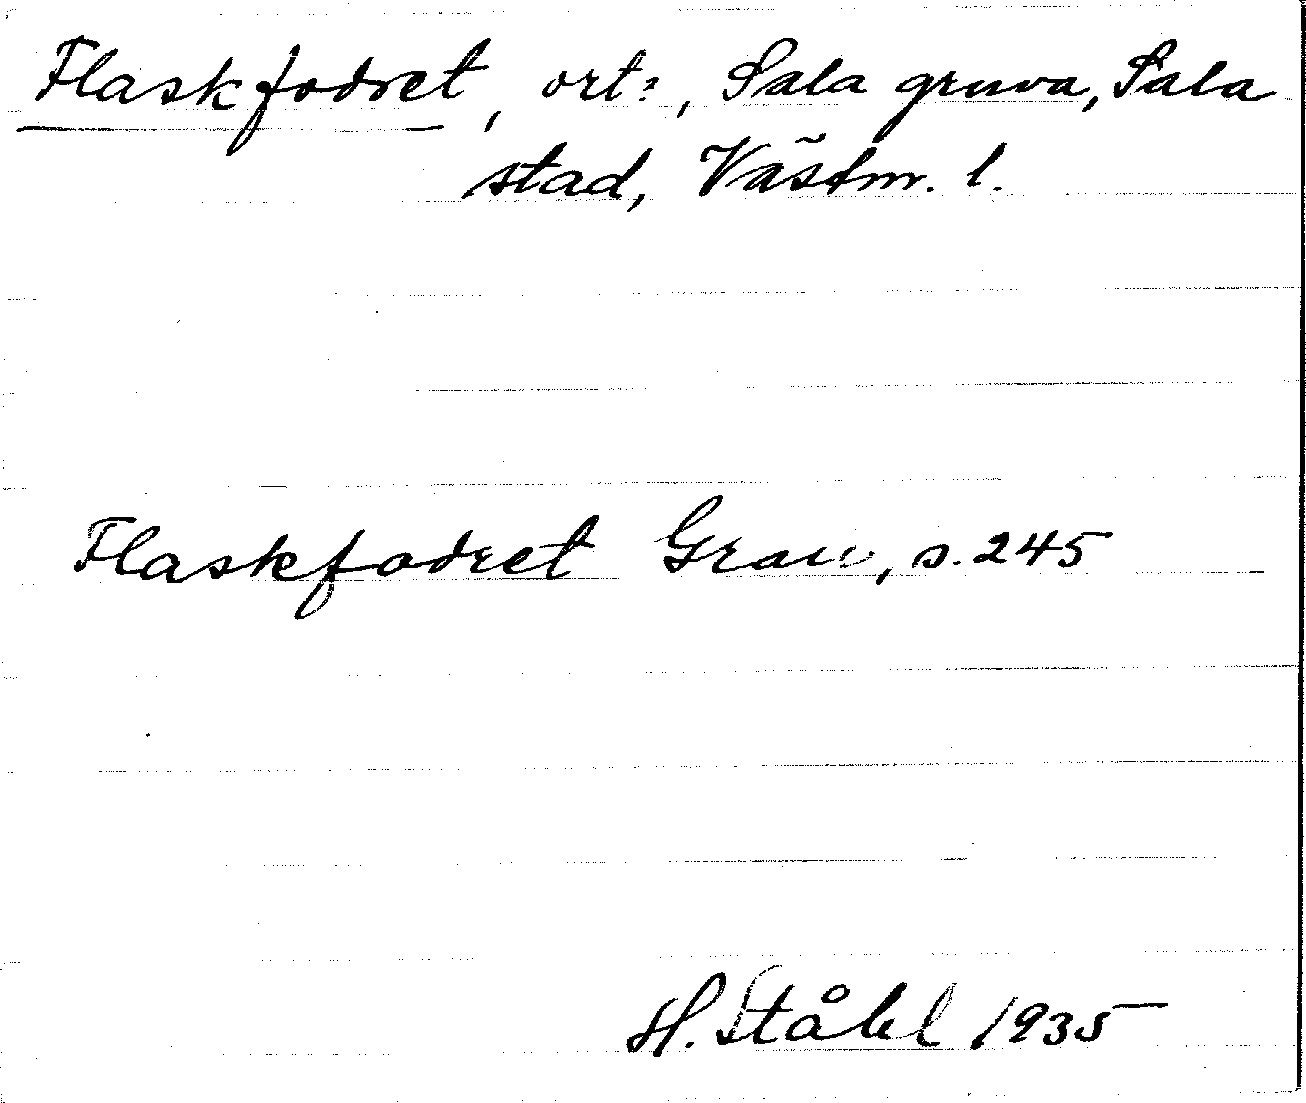 Flaskfodret, ort?, Sala gruva, Sala
stad, Västm. l.
Flaskfodret Grau, s. 245
H. Ståhl 1935